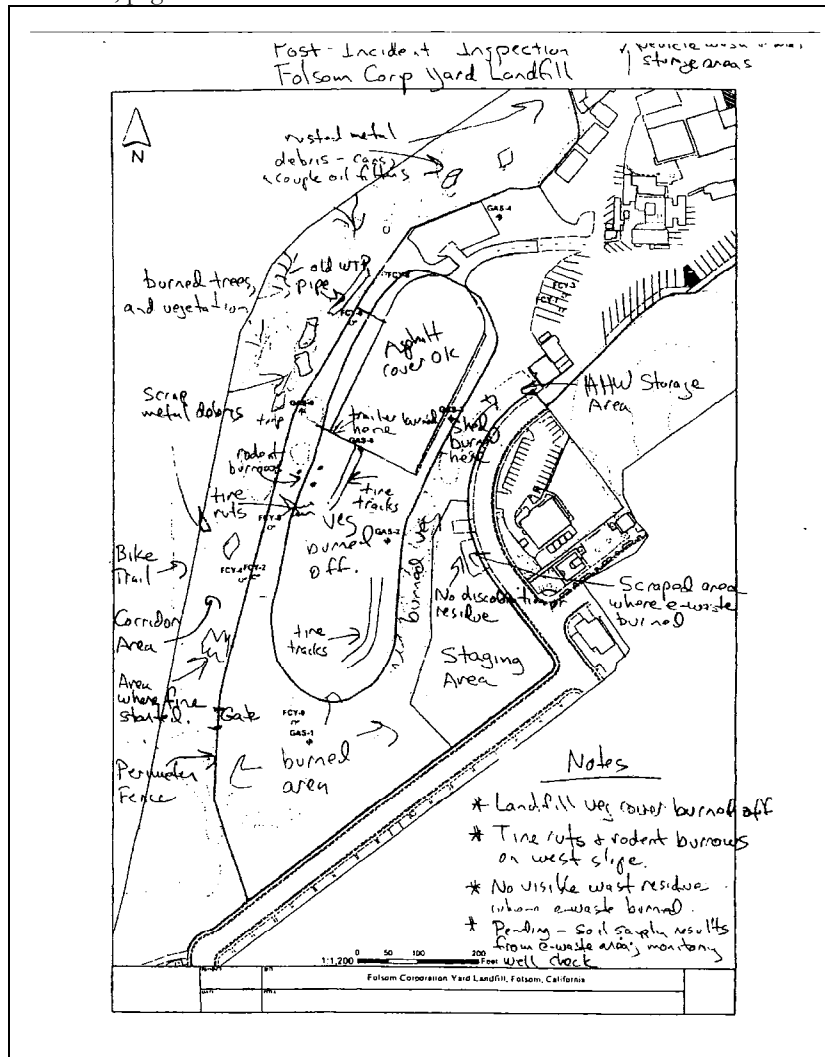 Post-Incident Inspection
Folsom Corp Yard Landfill
storage areas
N
rusted metal
debris - cans,
a couple oil filters
GAS-4
burned trees,
and vegetation
old WTP
pipe
Asphalt
cover OK
AHW Storage
Area
Scrap
metal debris
trailer burned
here
Shed
burned
here
rodent
burrows
tire
ruts
tire
tracks
Veg
burned
off.
GAS-2
burned veg
Bike
Trail
FCY-2
No discoloration or
residue
Scraped area
where e-waste
burned
Corridor
Area
tire
tracks
Staging
Area
Area
where fire
started.
Gate
GAS-1
burned
area
Perimeter
Fence
Notes
* Landfill veg cover burned off
* Tire ruts & rodent burrows
on west slope.
* No visible wast residue
where e-waste burned.
* Pending - soil sample results
from e-waste area; monitoring
well check
1:1,200
0 50 100 200
Feet
Folsom Corporation Yard Landfill, Folsom, California